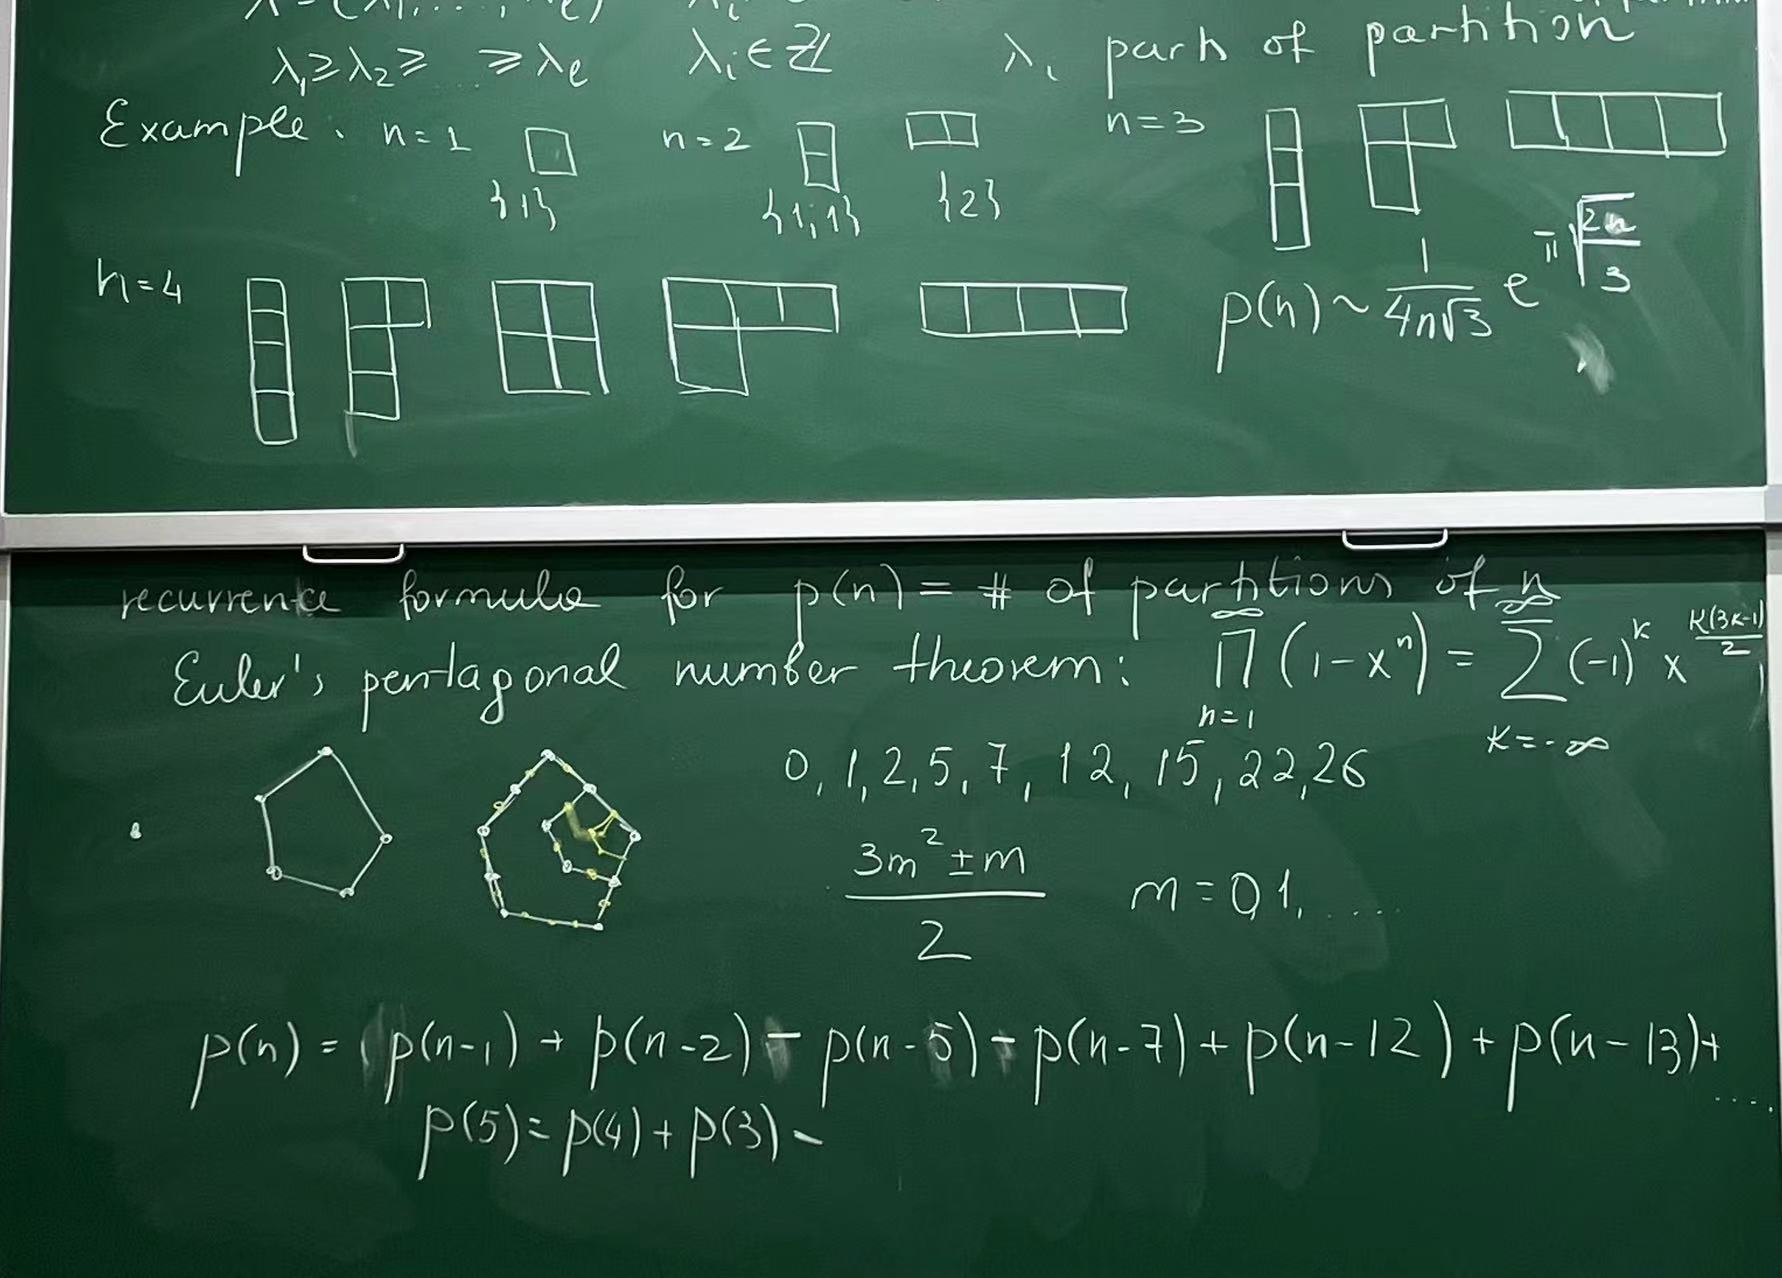 λ₁ ≥ λ₂ ≥ … ≥ λₑ λᵢ ∈ ℤ λᵢ parts of partition
Example. n=1 n=2 n=3
{1} {1,1} {2}
n=4 p(n) ~ 1/(4n√3) e^(π√(2n/3))
recurrence formula for p(n) = # of partitions of n
Euler's pentagonal number theorem: ∏_{n=1}^{∞} (1-xⁿ) = ∑_{k=-∞}^{∞} (-1)^k x^(k(3k-1)/2)
0, 1, 2, 5, 7, 12, 15, 22, 26
(3m² ± m)/2 m = 0,1, ....
p(n) = p(n-1) + p(n-2) - p(n-5) - p(n-7) + p(n-12) + p(n-13) + ....
p(5) = p(4) + p(3) -